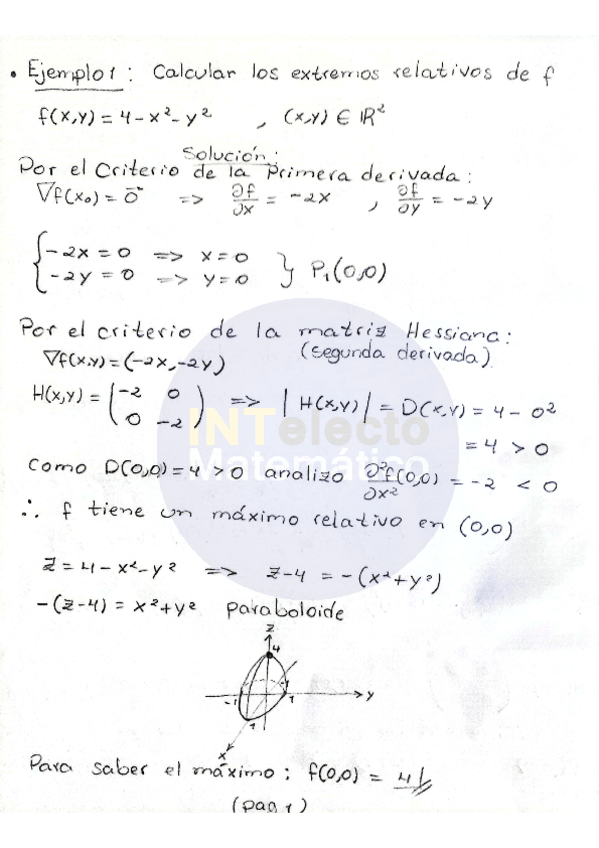 • Ejemplo 1 : Calcular los extremos relativos de f
f(x,y) = 4 - x² - y² , (x,y) ∈ ℝ²
Solución:
Por el Criterio de la Primera derivada:
∇f(x₀) = 0⃗ => ∂f/∂x = -2x , ∂f/∂y = -2y
{ -2x = 0 => x = 0
-2y = 0 => y = 0 } P₁(0,0)
Por el criterio de la matriz Hessiana:
∇f(x,y) = (-2x, -2y) (segunda derivada)
H(x,y) = ( -2 0
0 -2 ) => | H(x,y) | = D(x,y) = 4 - 0²
= 4 > 0
INTelecto
Matemático
Como D(0,0) = 4 > 0 analizo ∂²f(0,0)/∂x² = -2 < 0
∴ f tiene un máximo relativo en (0,0)
z = 4 - x² - y² => z - 4 = -(x² + y²)
-(z-4) = x² + y² paraboloide
z
4
-1
-1
1
y
1
x
Para saber el máximo : f(0,0) = 4
(pag 1)